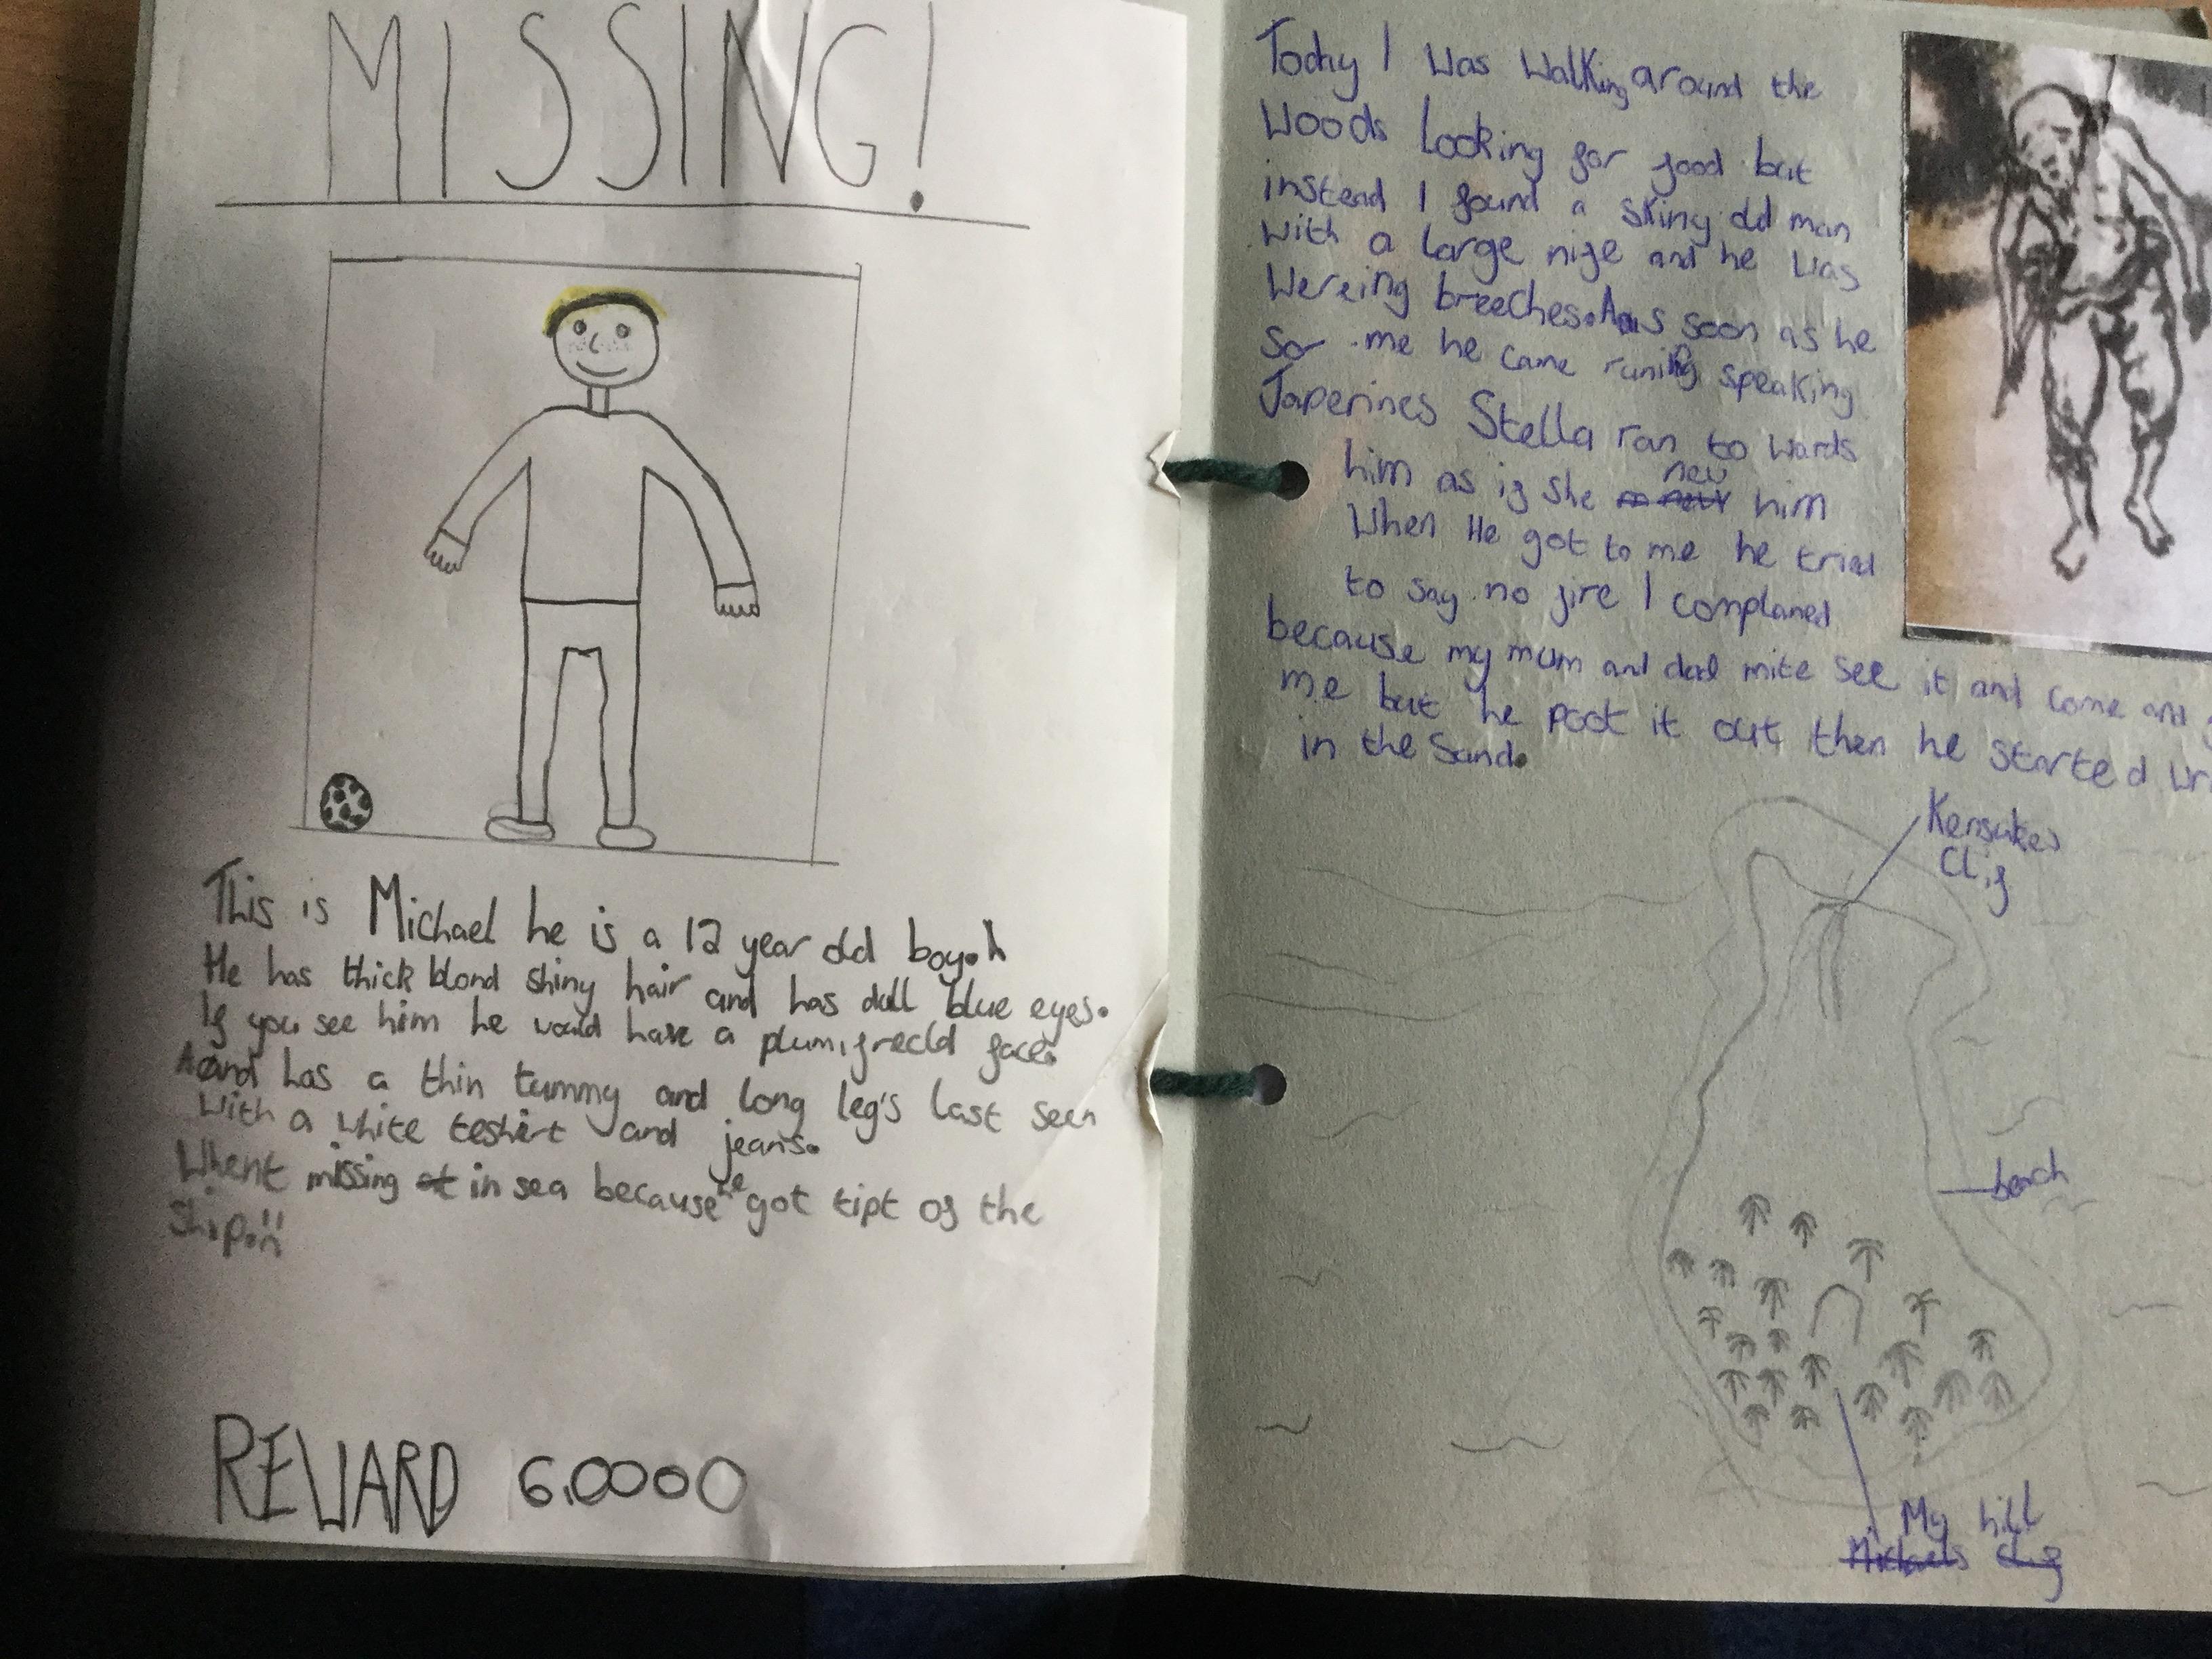 MISSING!
This is Michael he is a 12 year old boy.
He has thick blond shiny hair and has dull blue eyes.
If you see him he would have a plum, freckld face.
and has a thin tummy and long leg's last seen
with a white teshirt and jeans.
Whent missing at in sea because he got tipt of the
Ship.!!
REWARD 6,0000
Today I was walking around the
woods Looking for food but
instead I found a skiny old man
with a large nife and he was
wereing breeches. As soon as he
sor me he came runing speaking
Japerines Stella ran to wards
him as if she new him
When He got to me he tried
to say no fire I complaned
because my mum and dad mite see it and come and
me but he poot it out then he started
in the Sand.
Kensukes
Clif
beach
My hill
Michaels Clif